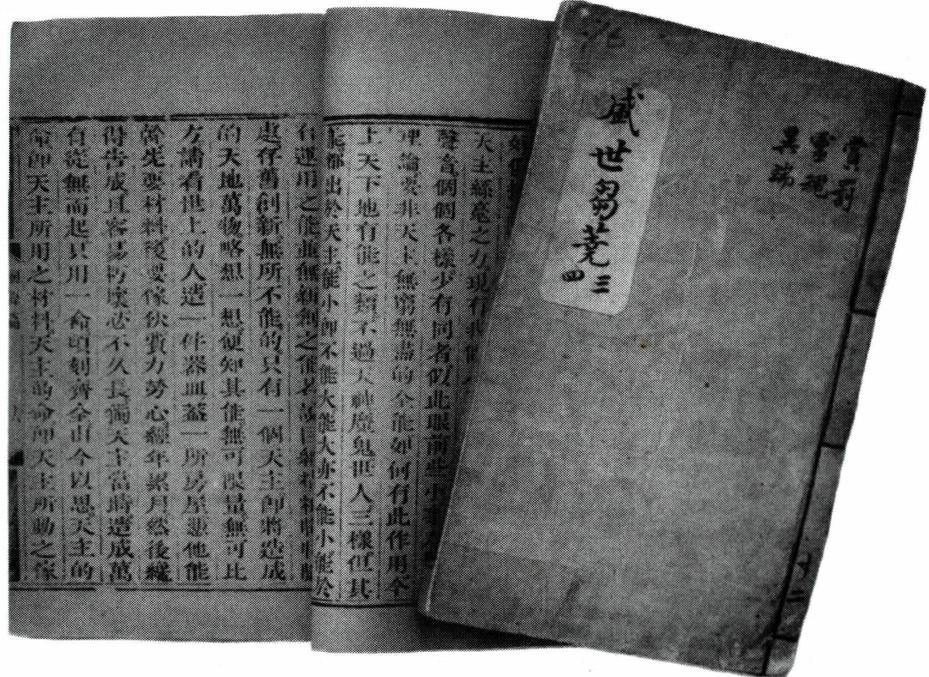 賞罰
靈魂
異端
盛世芻蕘 三
四
天主絲毫之力現有
聲音個個各樣少有同者似此眼前些小
理論要非天主無窮無盡的全能如何有此作用今
上天下地有能之類不過天神魔鬼世人三樣但其
能都出於天主能小卽不能大能大亦不能小能於
有運用之能並無新創之能若論
處存舊創新無所不能的只有一個天主卽將造成
的天地萬物略想一想便知其能無可限量無可比
方請看世上的人造一件器皿蓋一所房屋憑他能
幹先要材料後要傢伙費力勞心經年累月然後纔
得告成且容易朽壞必不久長獨天主當時造成萬
有從無而起只用一命頃刻齊全由今以思天主的
命卽天主所用之材料天主的命卽天主所動之傢